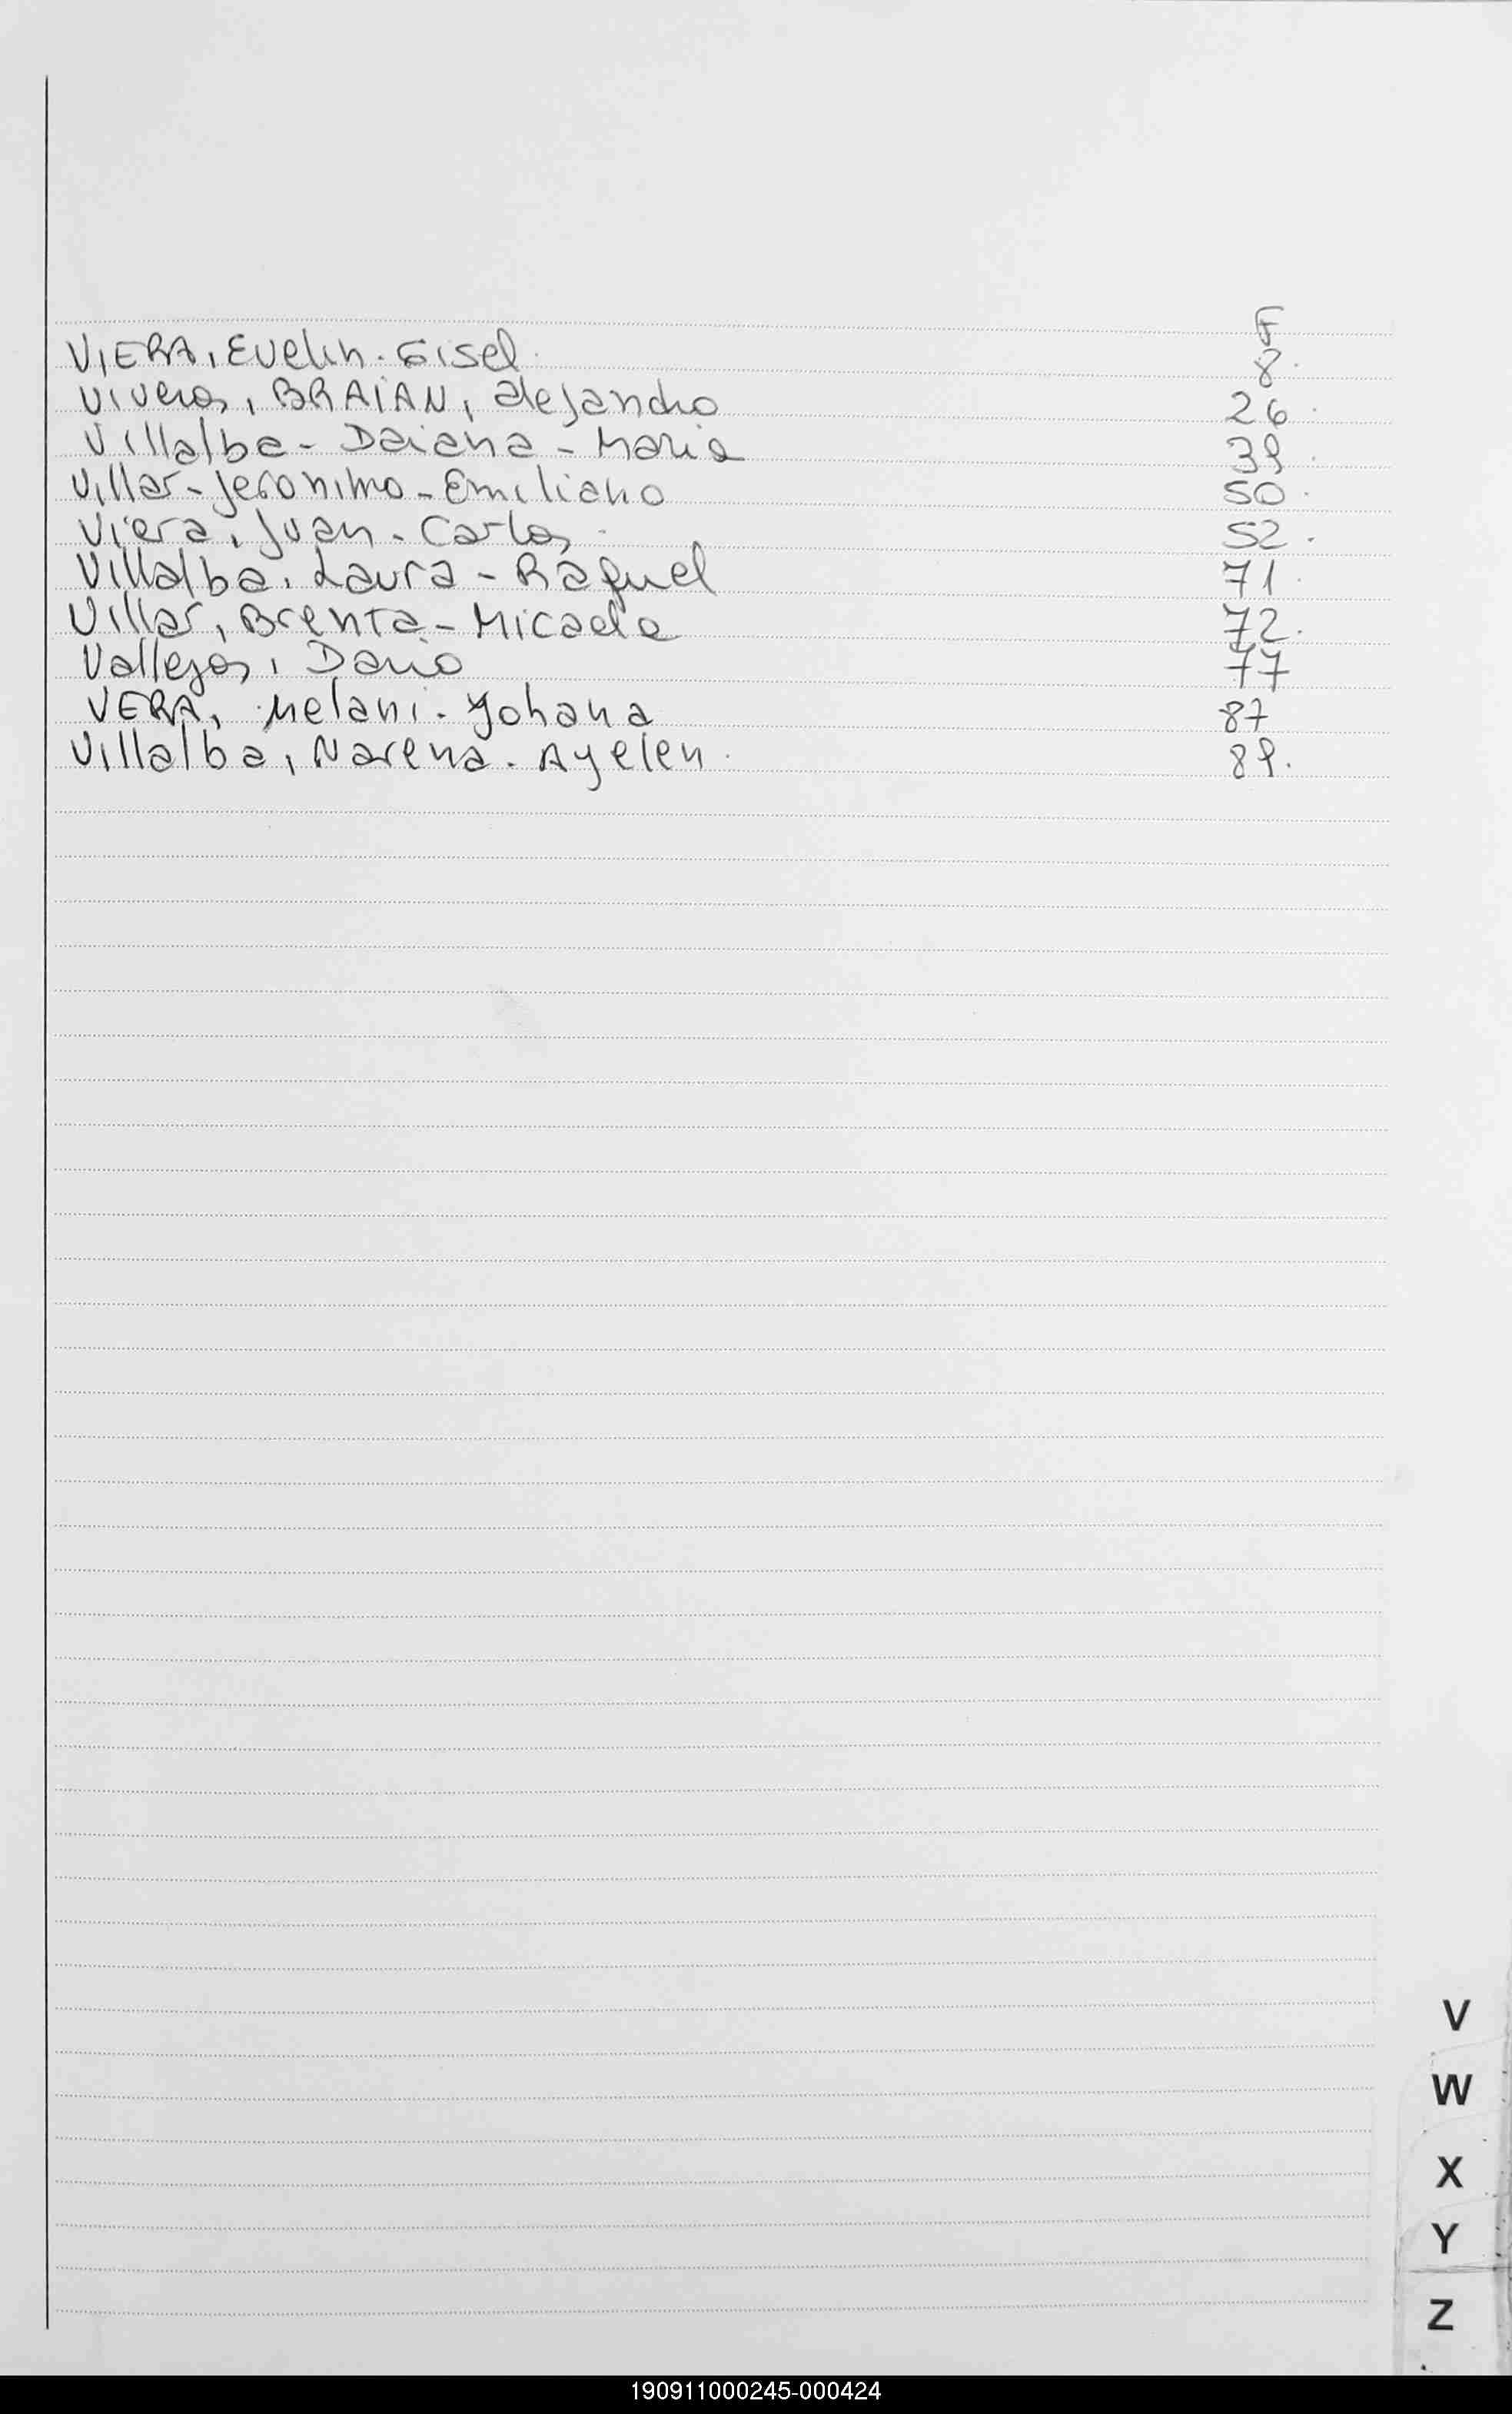 F
VIERA, Evelin. Gisel. 8.
Viveros, BRAIAN, Alejandro 26.
Villalba - Daiana - Maria 39.
Villar - Jeronimo - Emiliano 50.
Viera, Juan. Carlos. 52.
Villalba, Laura - Raquel 71.
Villar, Brenta - Micaela 72.
Vallejos, Dario 77
VERA, Melani. Yohana 87
Villalba, Narena. Ayelen. 89.
V
W
X
Y
Z
190911000245-000424